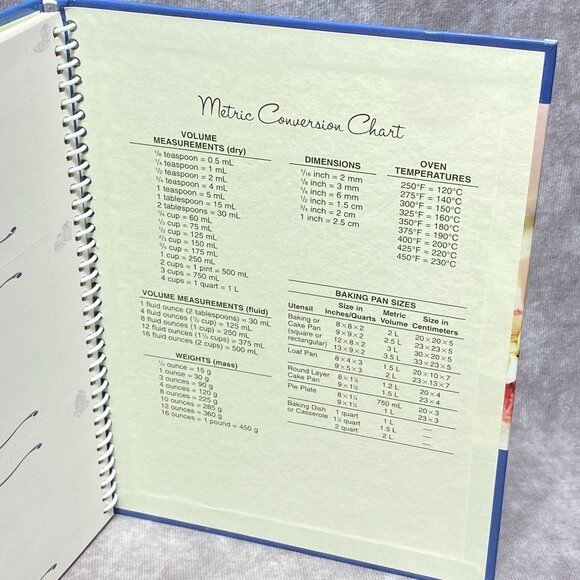 Metric Conversion Chart
VOLUME
MEASUREMENTS (dry)
1/8 teaspoon = 0.5 mL
1/4 teaspoon = 1 mL
1/2 teaspoon = 2 mL
3/4 teaspoon = 4 mL
1 teaspoon = 5 mL
1 tablespoon = 15 mL
2 tablespoons = 30 mL
1/4 cup = 60 mL
1/3 cup = 75 mL
1/2 cup = 125 mL
2/3 cup = 150 mL
3/4 cup = 175 mL
1 cup = 250 mL
2 cups = 1 pint = 500 mL
3 cups = 750 mL
4 cups = 1 quart = 1 L
VOLUME MEASUREMENTS (fluid)
1 fluid ounce (2 tablespoons) = 30 mL
4 fluid ounces (1/2 cup) = 125 mL
8 fluid ounces (1 cup) = 250 mL
12 fluid ounces (1 1/2 cups) = 375 mL
16 fluid ounces (2 cups) = 500 mL
WEIGHTS (mass)
1/2 ounce = 15 g
1 ounce = 30 g
3 ounces = 90 g
4 ounces = 120 g
8 ounces = 225 g
10 ounces = 285 g
12 ounces = 360 g
16 ounces = 1 pound = 450 g
DIMENSIONS
1/16 inch = 2 mm
1/8 inch = 3 mm
1/4 inch = 6 mm
1/2 inch = 1.5 cm
3/4 inch = 2 cm
1 inch = 2.5 cm
OVEN
TEMPERATURES
250°F = 120°C
275°F = 140°C
300°F = 150°C
325°F = 160°C
350°F = 180°C
375°F = 190°C
400°F = 200°C
425°F = 220°C
450°F = 230°C
BAKING PAN SIZES
Utensil Size in Inches/Quarts Metric Volume Size in Centimeters
Baking or 8×8×2 2 L 20×20×5
Cake Pan 9×9×2 2.5 L 23×23×5
(square or 12×8×2 3 L 30×20×5
rectangular) 13×9×2 3.5 L 33×23×5
Loaf Pan 8×4×3 1.5 L 20×10×7
9×5×3 2 L 23×13×7
Round Layer 8×1½ 1.2 L 20×4
Cake Pan 9×1½ 1.5 L 23×4
Pie Plate 8×1¼ 750 mL 20×3
9×1¼ 1 L 23×3
Baking Dish 1 quart 1 L —
or Casserole 1½ quart 1.5 L —
2 quart 2 L —